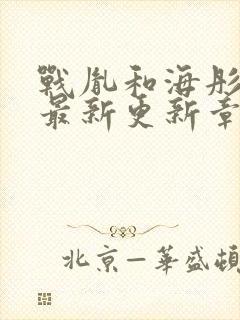 戰胤和海彤
最新更新章
北京—華盛頓